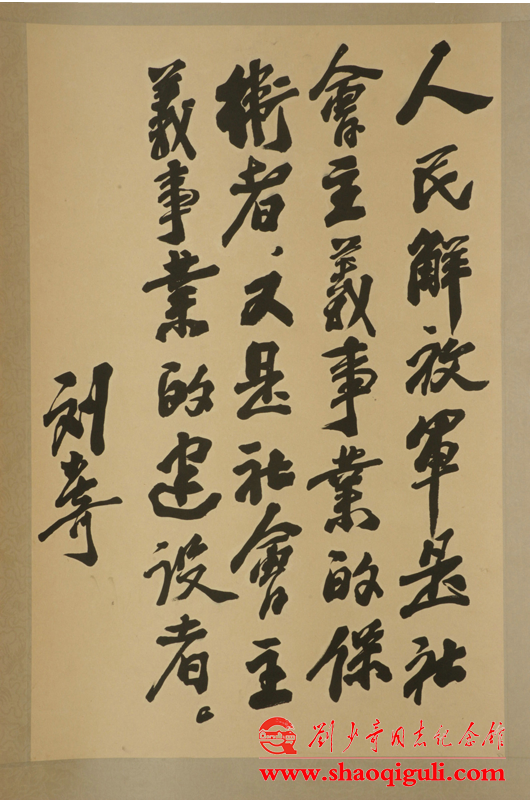 人民解放軍是社
會主義事業的保
衛者，又是社會主
義事業的建設者。
刘少奇
劉少奇同志紀念館
www.shaoqiguli.com